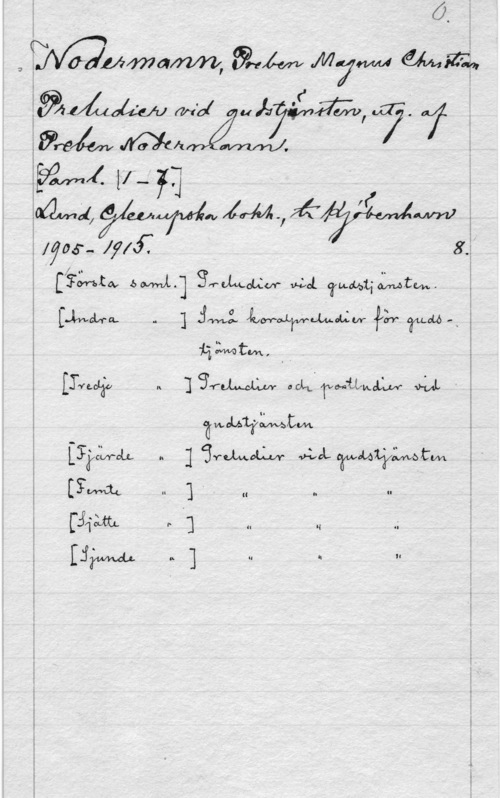 O.
Nodermann, Preben Magnus Christian
Preludier vid gudstjänsten, utg. af
Preben Nodermann.
[Saml. [1 - 7.]
Lund, Gleerupska bokh., tr. Kjöbenhavn
1905 - 1915. 8.
[Första saml.] Preludier vid gudstjänsten.
[Andra " ] Små koralpreludier för guds-
tjänsten.
[Tredje " ] Preludier och postludier vid
gudstjänsten
[Fjärde " ] Preludier vid gudstjänsten
[Femte " ] " " "
[Sjätte " ] " " "
[Sjunde " ] " " "